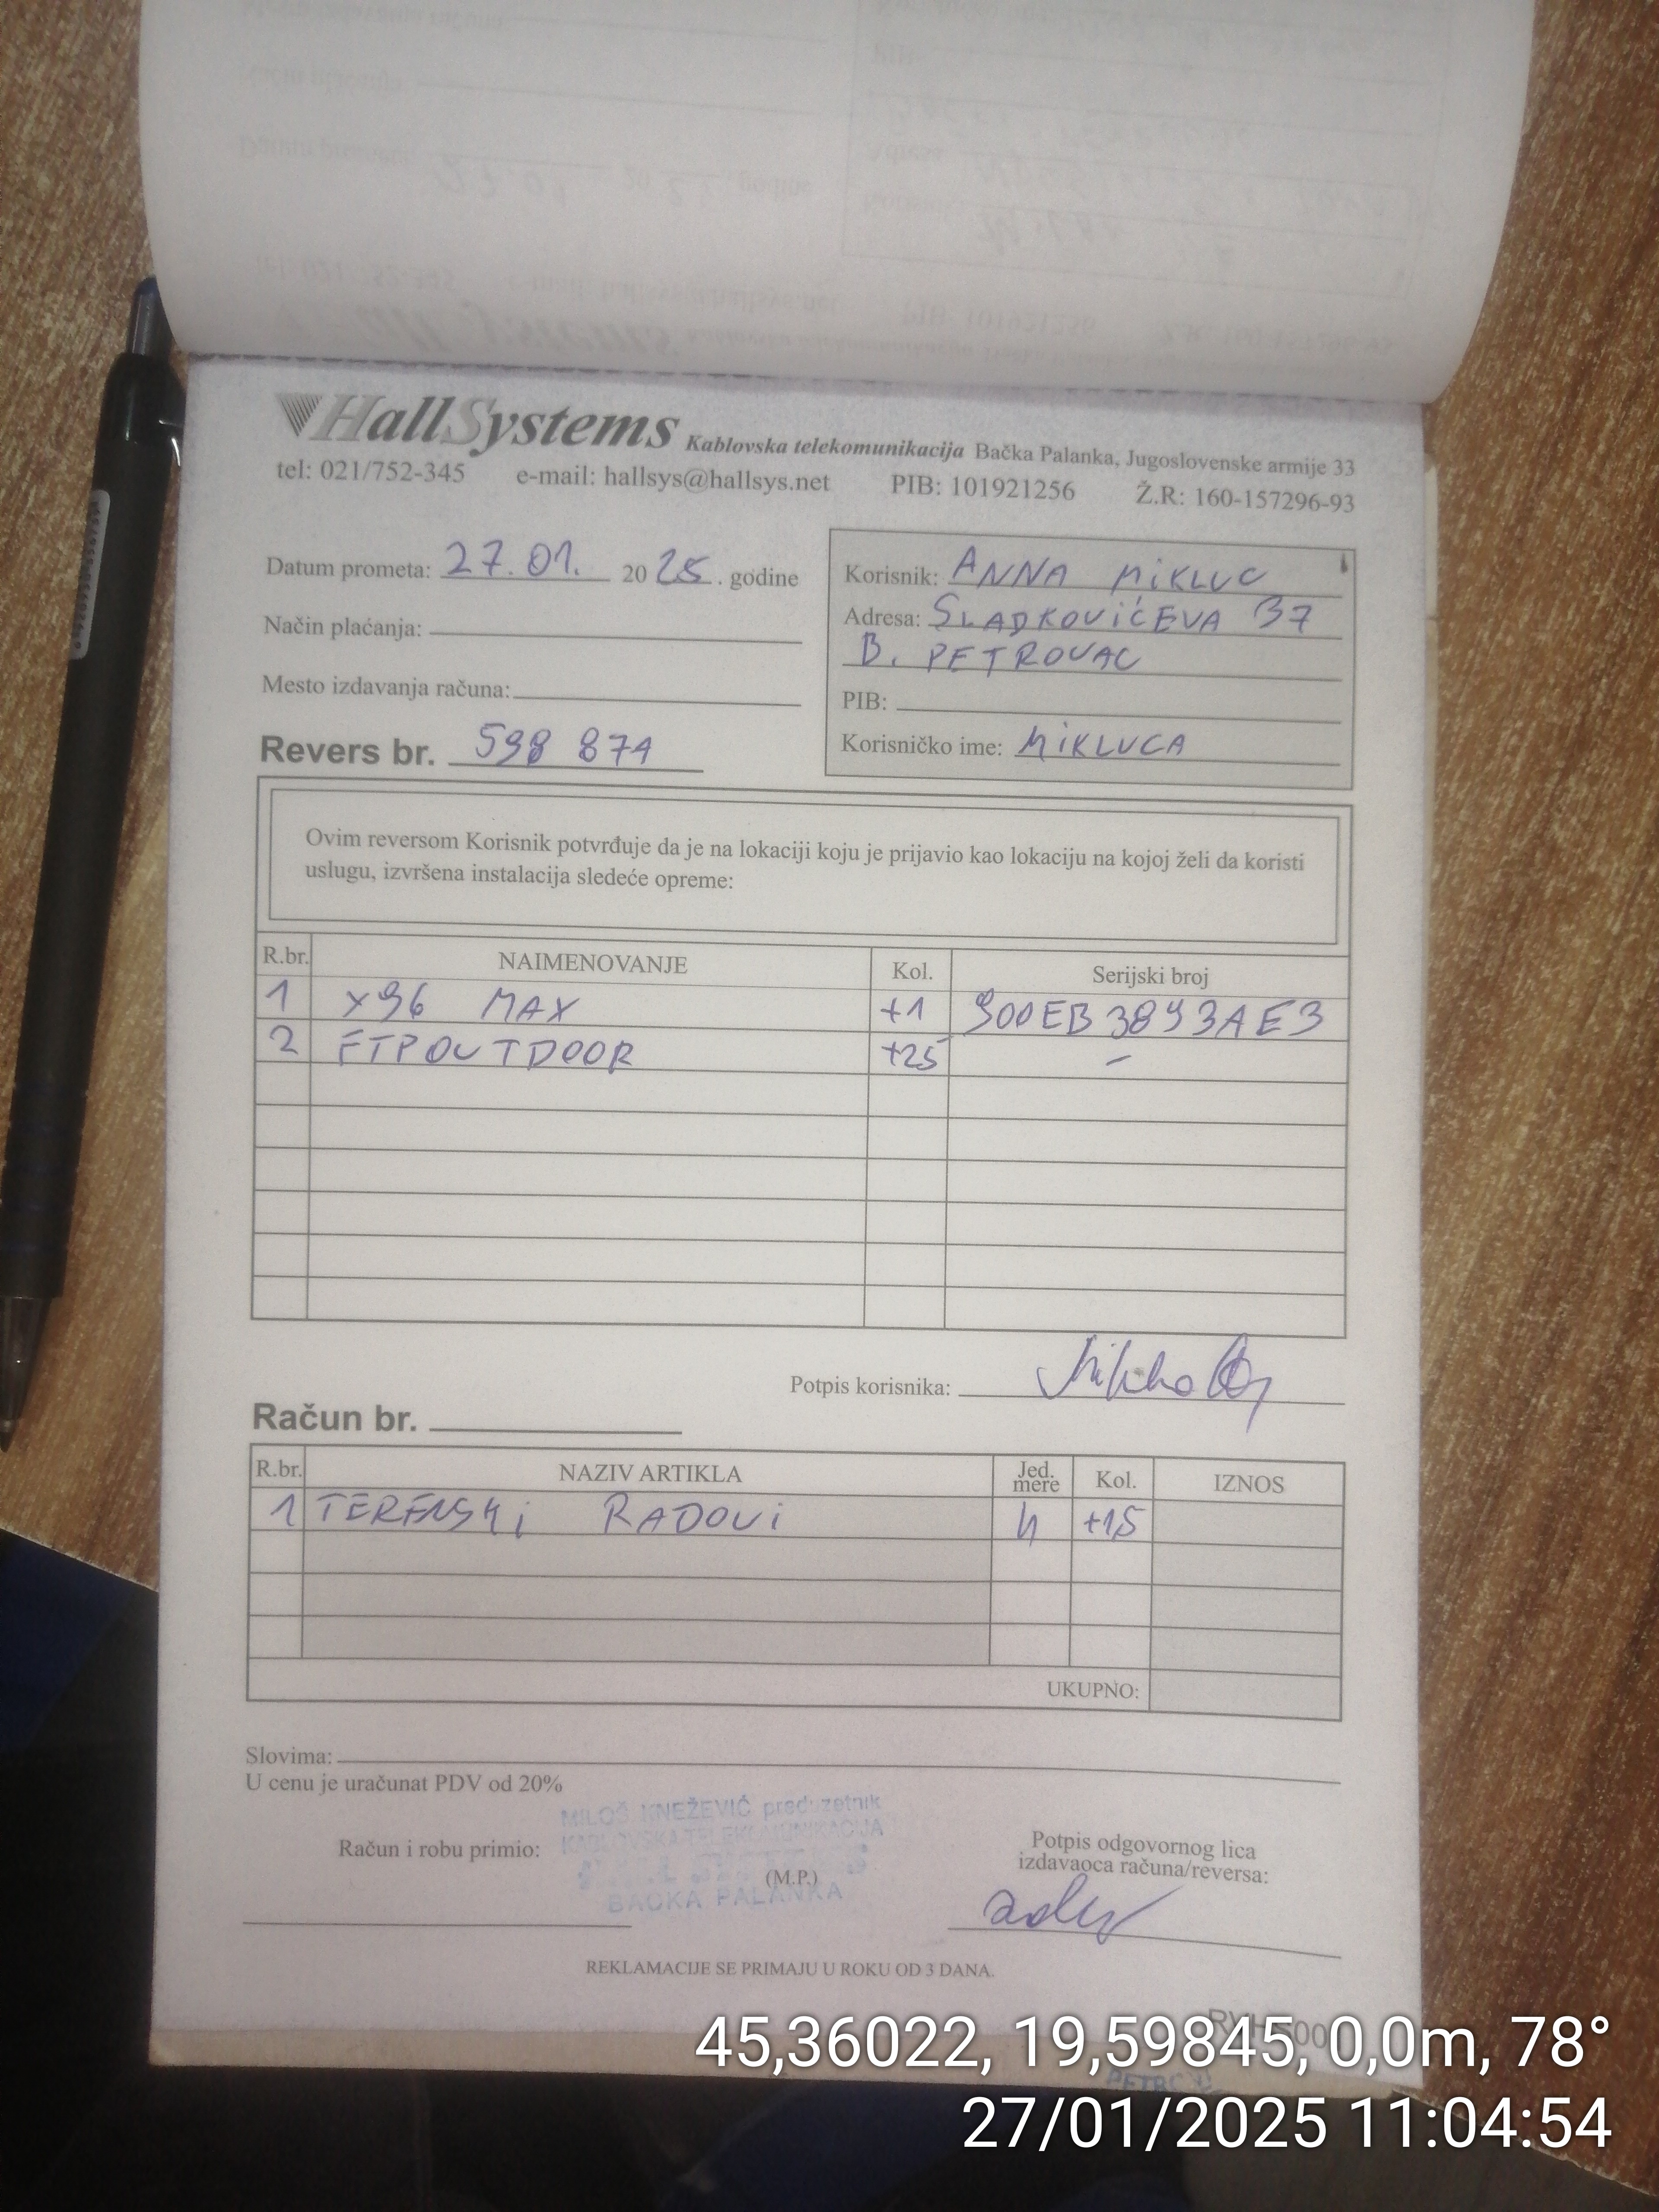 HallSystems Kablovska telekomunikacija Bačka Palanka, Jugoslovenske armije 33
tel: 021/752-345 e-mail: hallsys@hallsys.net PIB: 101921256 Ž.R: 160-157296-93
Datum prometa: 27.01. 2025. godine
Način plaćanja:
Mesto izdavanja računa:
Revers br. 598 871
Korisnik: ANNA MiKLUC
Adresa: SLADKOVićEVA 37
B. PETROVAC
PIB:
Korisničko ime: MiKLUCA
Ovim reversom Korisnik potvrđuje da je na lokaciji koju je prijavio kao lokaciju na kojoj želi da koristi
uslugu, izvršena instalacija sledeće opreme:
R.br. NAIMENOVANJE Kol. Serijski broj
1 X96 MAX +1 900EB3893AE3
2 FTPOUTDOOR +25 -
Potpis korisnika:
Račun br.
R.br. NAZIV ARTIKLA Jed. mere Kol. IZNOS
1 TERENSKi RADOVi h +1,5
UKUPNO:
Slovima:
U cenu je uračunat PDV od 20%
MILOŠ KNEŽEVIĆ preduzetnik
KABLOVSKA TELEKOMUNIKACIJA
BAČKA PALANKA
Račun i robu primio:
(M.P.)
Potpis odgovornog lica
izdavaoca računa/reversa:
REKLAMACIJE SE PRIMAJU U ROKU OD 3 DANA.
45,36022, 19,59845, 0,0m, 78°
27/01/2025 11:04:54